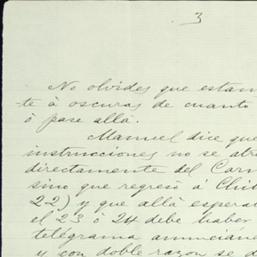 3
No olvides que estam
te á oscuras de cuanto
ó pase allá.
Manuel dice que
instrucciones no se atre
directamente del Carm
sino que regresó á Chih
22) y que allá espera
el 23 ó 24 debe haber
telégrama anuncián
y con doble razon se d